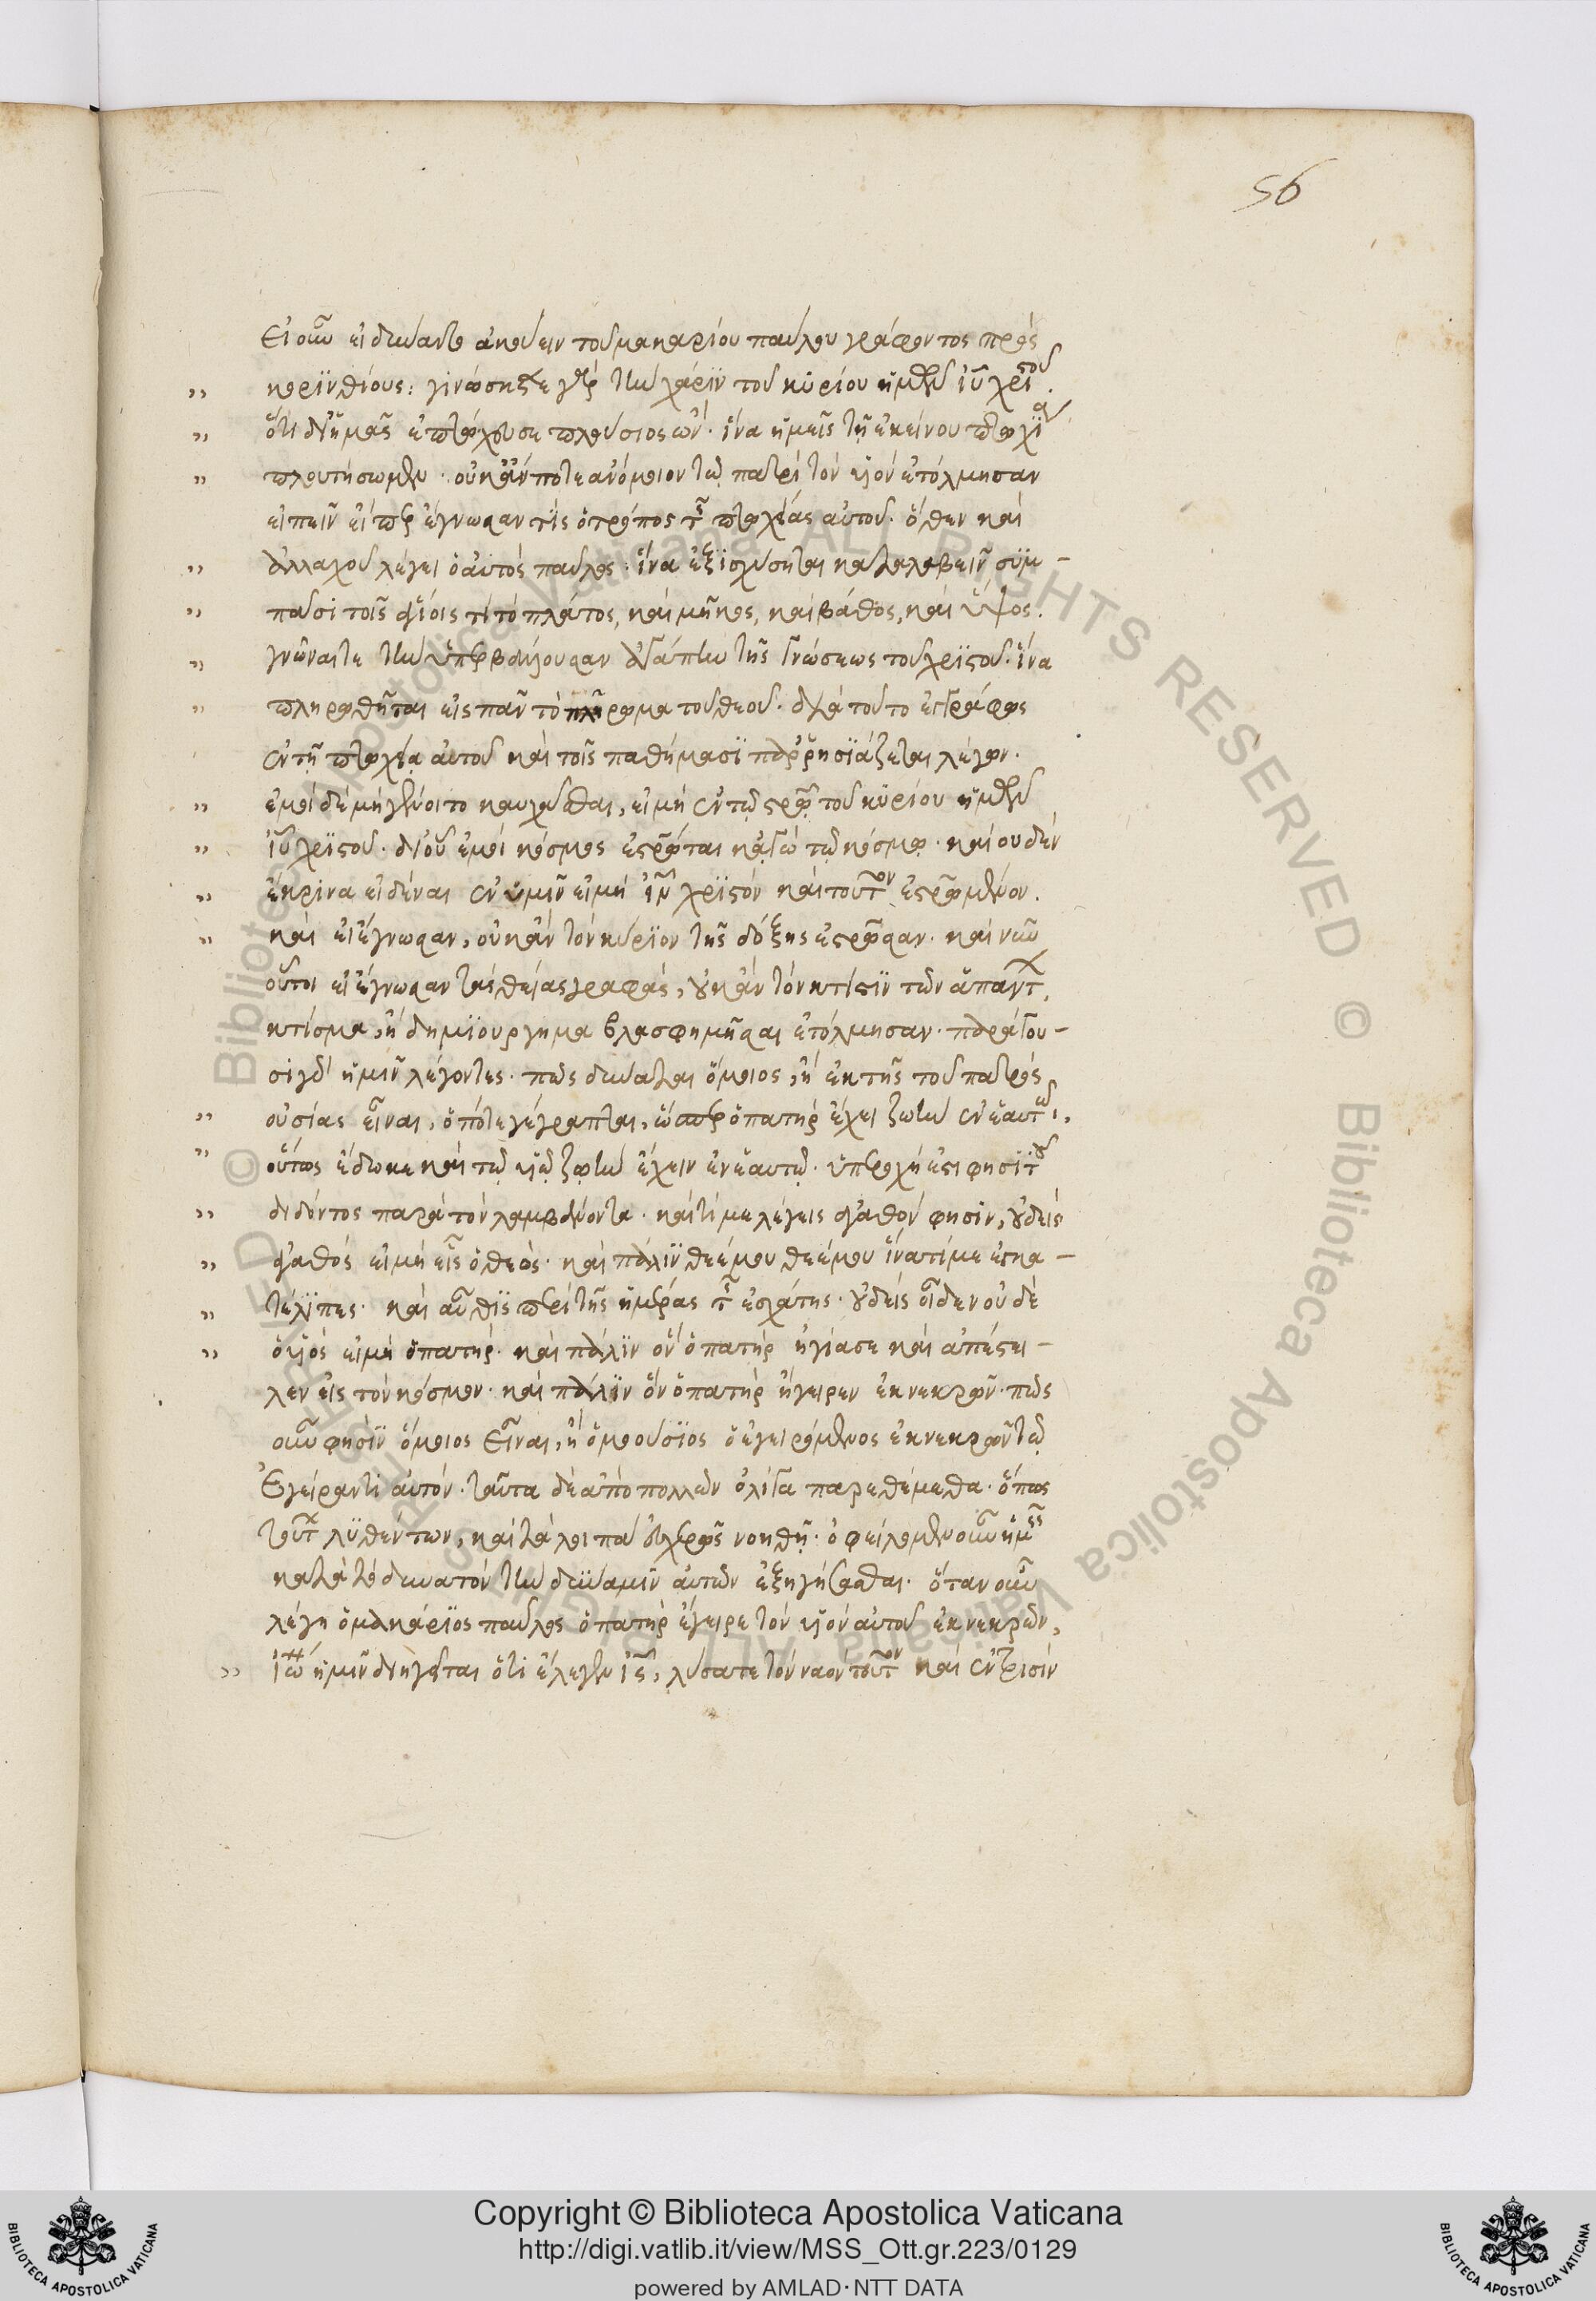 56
Εἰ οὖν ἐδύναντο ἀκούειν τοῦ μακαρίου παύλου γράφοντος πρὸς
,, κορϊνθίους: γινώσκετε γὰρ τὴν χάρϊν τοῦ κῡρίου ἡμῶν ἰῦ χρϊστοῦ.
,, ὅτι δι' ἡμᾶς ἐπτώχευσε πλούσιος ὤν· ἵνα ἡμεῖς τῇ ἐκείνου πτωχίᾳ
,, πλουτήσωμεν· οὐκ ἄν ποτε ἀνόμοιον τῷ πατρὶ τὸν υἱὸν ἐτόλμησαν
εἰπεῖν εἴπερ ἔγνωσαν τίς ὁ τρόπος τῆς πτωχείας αὐτοῦ. ὅθεν καὶ
,, ἀλλαχοῦ λέγει ὁ αὐτὸς παῦλος· ἵνα ἐξϊσχύσηται καταλαβεῖν σὺμ-
,, πᾶσι τοῖς ἁγίοις τί τὸ πλάτος, καὶ μῆκος, καὶ βάθος, καὶ ὕψος.
,, γνῶναι τε τὴν ὑπερβάλλουσαν ἀγάπην τῆς γνώσεως τοῦ χρϊστοῦ. ἵνα
,, πληρωθῆται εἰς πᾶν τὸ πλήρωμα τοῦ θεοῦ. διὰ τοῦτο ὁ γράφων
ἐν τῇ πτωχίᾳ αὐτοῦ καὶ τοῖς παθήμασϊ παρρησϊάζεται λέγων.
,, ἐμοὶ δὲ μὴ γένοιτο καυχᾶσθαι, εἰ μὴ ἐν τῷ σρῷ τοῦ κῡρίου ἡμῶν
,, ἰῦ χρϊστοῦ. δι' οὗ ἐμοὶ κόσμος ἐσρωται κἀγὼ τῷ κόσμῳ. καὶ οὐδὲν
,, ἔκρινα εἰδέναι ἐν ὑμῖν εἰ μὴ ἰν χρϊστὸν καὶ τοῦτον ἐσρωμένον.
,, καὶ εἰ ἔγνωσαν, οὐκ ἂν τὸν κύρϊον τῆς δόξης ἐσρωσαν. καὶ νῦν
οὗτοι εἰ ἔγνωσαν τὰς θείας γραφάς, οὐκ ἂν τὸν κτίστϊν τῶν ἁπάντων,
κτίσμα, ἢ δημϊούργημα βλασφημῆσαι ἐτόλμησαν. παράγου-
σι γὰρ ἡμῖν λέγοντες· πῶς δύναται ὅμοιος, ἢ ἐκ τῆς τοῦ πατρὸς
,, οὐσίας εἶναι, ὁπότε γέγραπται, ὥσπερ ὁ πατὴρ ἔχει ζωὴν ἐν ἑαυτῶι.
,, οὕτως ἔδωκε καὶ τῷ υἱῷ ζωὴν ἔχειν ἐν ἑαυτῷ. ὑπεροχή ἐστι φησὶ τοῦ
,, διδόντος παρὰ τὸν λαμβάνοντα. καὶ τί με λέγεις ἀγαθόν φησιν, οὐδεὶς
,, ἀγαθὸς εἰ μὴ εἷς ὁ θεός. καὶ πάλϊν θεέ μου θεέ μου ἵνατί με ἐγκα-
,, τέλϊπες. καὶ αὖθϊς περὶ τῆς ἡμέρας τῆς ἐσχάτης. οὐδεὶς οἶδεν οὐδὲ
,, ὁ υἱὸς εἰ μὴ ὁ πατήρ. καὶ πάλϊν ὃν ὁ πατὴρ ἡγίασε καὶ ἀπέστει-
λεν εἰς τὸν κόσμον. καὶ πάλϊν ὃν ὁ πατὴρ ἤγειρεν ἐκ νεκρῶν. πῶς
οὖν φησὶϊ ὅμοιος εἶναι, ἢ ὁμοούσϊος ὁ ἐγειρόμενος ἐκ νεκρῶν τῷ
ἐγείραντι αὐτόν. ταῦτα δὲ ἀπὸ πολλῶν ὀλίγα παρεθέμεθα. ὅπως
τούτων λϋθέντων, καὶ τὰ λοιπὰ εὐχερῶς νοηθῇ. ὀφείλομεν οὖν ἡμεῖς
κατὰ τὸ δυνατὸν τὴν δύναμϊν αὐτῶν ἐξηγήσασθαι. ὅταν οὖν
λέγῃ ὁ μακάρϊος παῦλος ὁ πατὴρ ἔγειρε τὸν υἱὸν αὐτοῦ ἐκ νεκρῶν,
,, ἰω ἡμῖν διηγεῖται ὅτι ἔλεγεν ἰς, λύσατε τὸν ναὸν τοῦτον καὶ ἐν τρισὶν
Copyright © Biblioteca Apostolica Vaticana
http://digi.vatlib.it/view/MSS_Ott.gr.223/0129
powered by AMLAD·NTT DATA
BIBLIOTECA APOSTOLICA VATICANA
BIBLIOTECA APOSTOLICA VATICANA